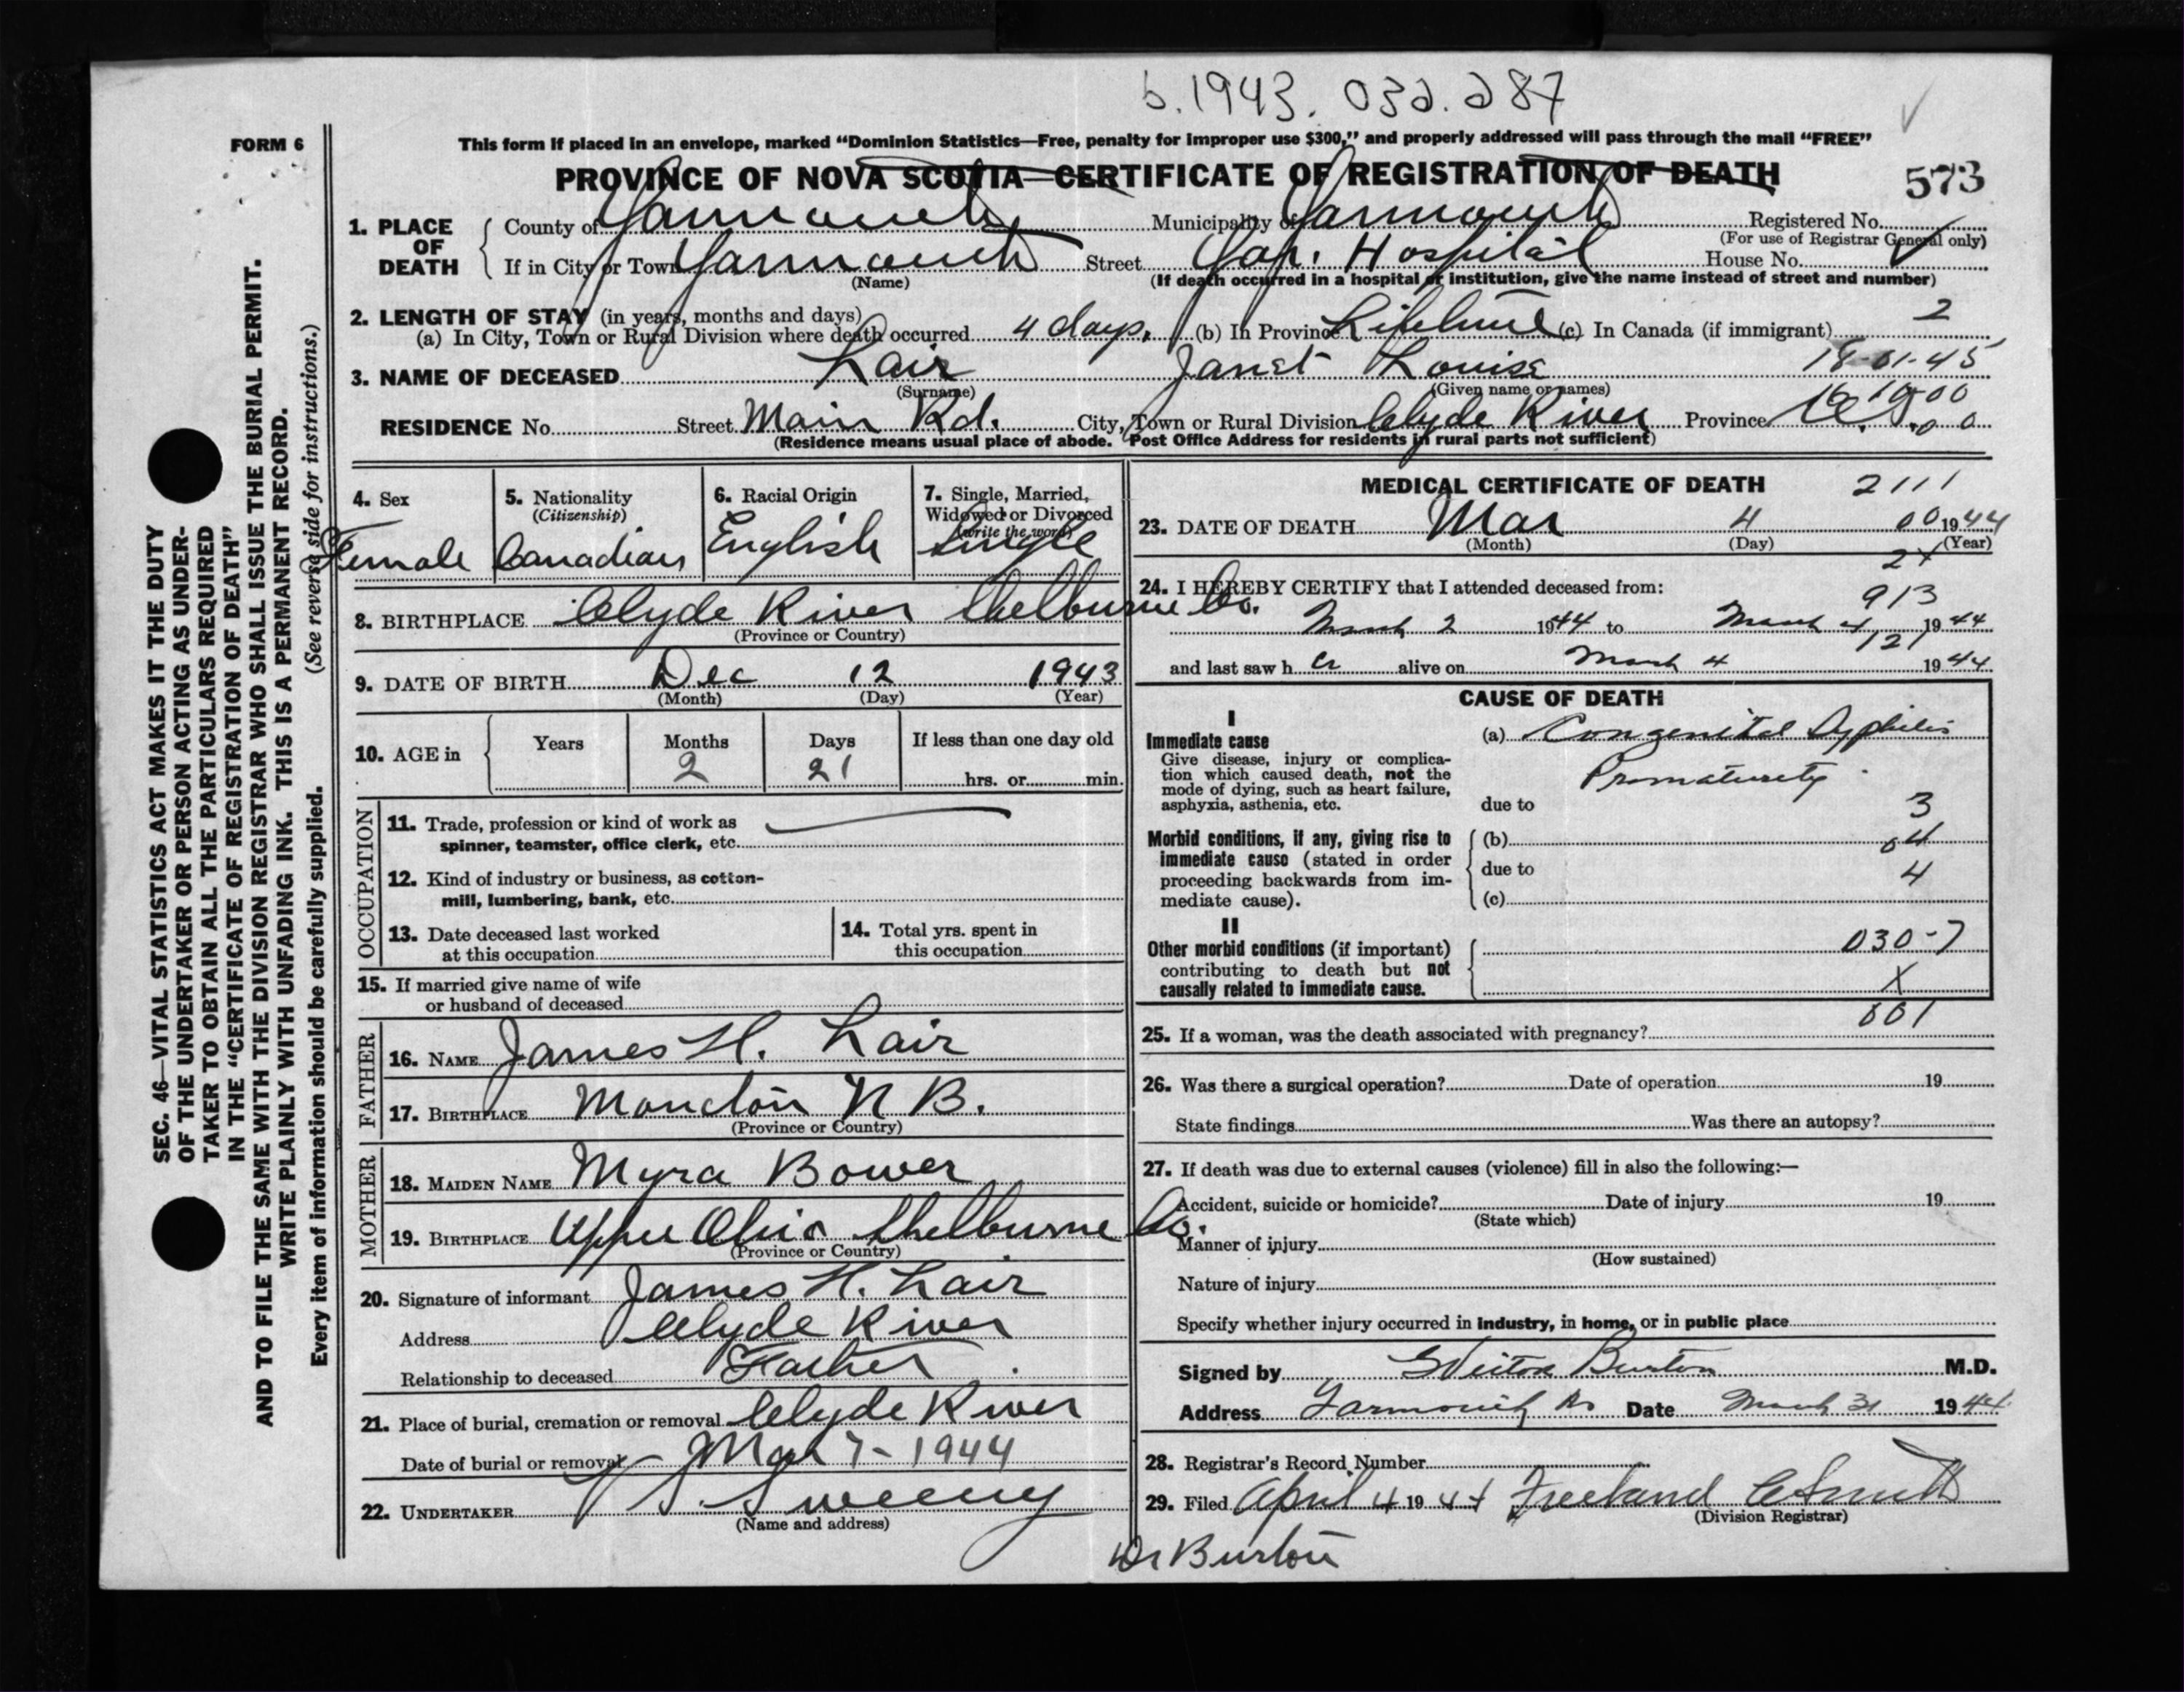 b.1943. 032.287
FORM 6
This form if placed in an envelope, marked "Dominion Statistics—Free, penalty for improper use $300," and properly addressed will pass through the mail "FREE"
PROVINCE OF NOVA SCOTIA—CERTIFICATE OF REGISTRATION OF DEATH
573
1. PLACE OF DEATH
County of Yarmouth Municipality of Yarmouth Registered No.
(For use of Registrar General only)
If in City or Town Yarmouth Street Yar. Hospital House No.
(Name) (If death occurred in a hospital or institution, give the name instead of street and number)
2. LENGTH OF STAY (in years, months and days) 2
(a) In City, Town or Rural Division where death occurred 4 days. (b) In Province Lifetime (c) In Canada (if immigrant)
3. NAME OF DECEASED Lair Janet Louise 18-01-45
(Surname) (Given name or names)
RESIDENCE No. Street Main Rd. City, Town or Rural Division Clyde River Province
(Residence means usual place of abode. Post Office Address for residents in rural parts not sufficient)
4. Sex
Female
5. Nationality
(Citizenship)
Canadian
6. Racial Origin
English
7. Single, Married,
Widowed or Divorced
(write the word)
Single
8. BIRTHPLACE Clyde River Shelburne Co.
(Province or Country)
9. DATE OF BIRTH Dec 12 1943
(Month) (Day) (Year)
10. AGE in Years Months Days If less than one day old
2 21 hrs. or min.
OCCUPATION
11. Trade, profession or kind of work as
spinner, teamster, office clerk, etc.
12. Kind of industry or business, as cotton-
mill, lumbering, bank, etc.
13. Date deceased last worked
at this occupation
14. Total yrs. spent in
this occupation
15. If married give name of wife
or husband of deceased
FATHER
16. NAME James H. Lair
17. BIRTHPLACE Moncton N B.
(Province or Country)
MOTHER
18. MAIDEN NAME Myra Bower
19. BIRTHPLACE Upper Ohio Shelburne Co.
(Province or Country)
20. Signature of informant James H. Lair
Address Clyde River
Relationship to deceased Father
21. Place of burial, cremation or removal Clyde River
Date of burial or removal Mar 7 - 1944
22. UNDERTAKER V S. Sweeny
(Name and address)
MEDICAL CERTIFICATE OF DEATH 2111
23. DATE OF DEATH Mar 4 00 1944
(Month) (Day) (Year)
24. I HEREBY CERTIFY that I attended deceased from:
913
March 2 1944 to March 4 1944
121
and last saw h er alive on March 4 1944
CAUSE OF DEATH
I
Immediate cause
Give disease, injury or complica-
tion which caused death, not the
mode of dying, such as heart failure,
asphyxia, asthenia, etc.
(a) Congenital Syphilis
Prematurity
due to
3
Morbid conditions, if any, giving rise to
immediate cause (stated in order
proceeding backwards from im-
mediate cause).
(b) 04
due to 4
(c)
II
Other morbid conditions (if important)
contributing to death but not
causally related to immediate cause.
030-7
X
001
25. If a woman, was the death associated with pregnancy?
26. Was there a surgical operation? Date of operation 19
State findings Was there an autopsy?
27. If death was due to external causes (violence) fill in also the following:—
Accident, suicide or homicide? Date of injury 19
(State which)
Manner of injury
(How sustained)
Nature of injury
Specify whether injury occurred in industry, in home, or in public place
Signed by Burton M.D.
Address Yarmouth NS Date March 31 1944
28. Registrar's Record Number
29. Filed April 4 1944 Freeland C Smith
(Division Registrar)
Dr Burton
SEC. 46—VITAL STATISTICS ACT MAKES IT THE DUTY
OF THE UNDERTAKER OR PERSON ACTING AS UNDER-
TAKER TO OBTAIN ALL THE PARTICULARS REQUIRED
IN THE "CERTIFICATE OF REGISTRATION OF DEATH"
AND TO FILE THE SAME WITH THE DIVISION REGISTRAR WHO SHALL ISSUE THE BURIAL PERMIT.
WRITE PLAINLY WITH UNFADING INK. THIS IS A PERMANENT RECORD.
Every item of information should be carefully supplied. (See reverse side for instructions.)